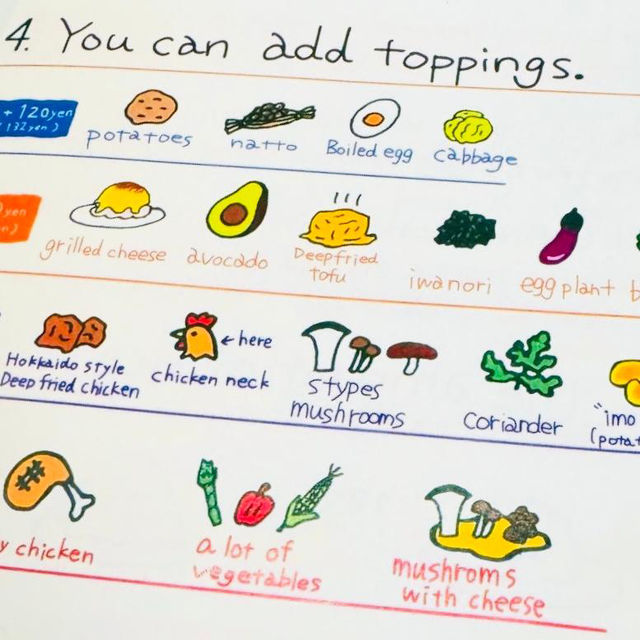 4. You can add toppings.
+ 120yen
(132yen)
potatoes
natto
Boiled egg
cabbage
yen
grilled cheese
avocado
Deep fried
tofu
iwanori
egg plant
b
Hokkaido style
Deep fried chicken
← here
chicken neck
5types
mushrooms
Coriander
"imo
(potat
y chicken
a lot of
vegetables
mushroms
with cheese